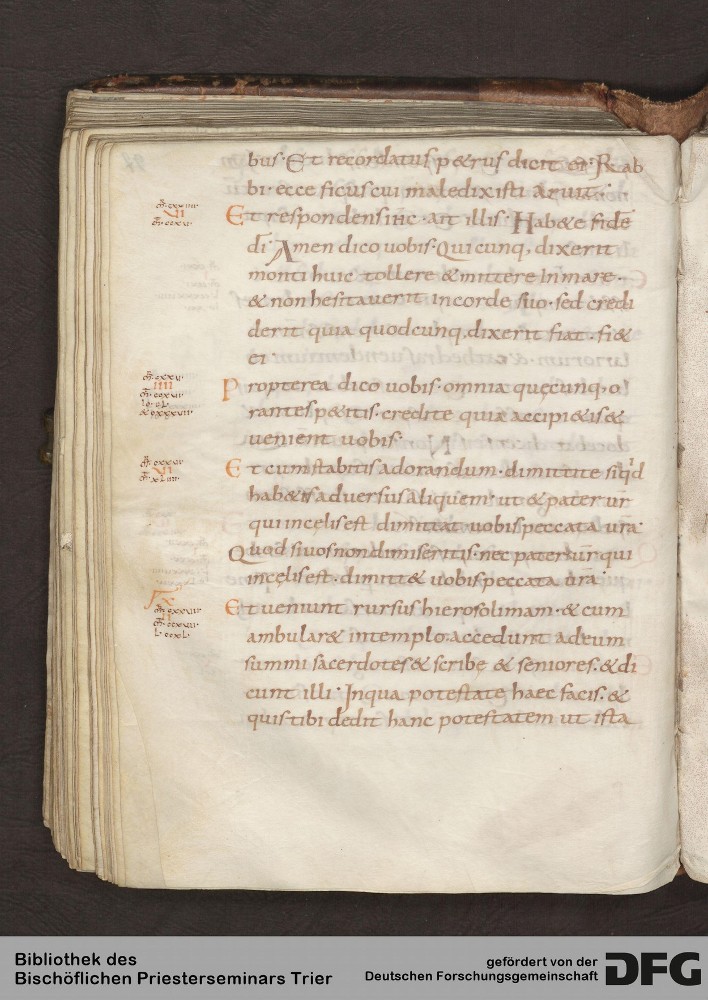 bus· Et recordatus petrus dicit ei· Rab
bi· ecce ficus cui maledixisti aruit·
Et respondens ihc· ait illis· Habete fidē
dī· Amen dico uobis· Quicunq, dixerit
monti huic tollere & mittere In mare·
& non hesitauerit in corde suo· sed credi
derit quia quodcunq, dixerit fiat· fi&
ei·
Propterea dico uobis· omnia quęcunq, o
rantes petitis· credite quia accipi&is &
uenient uobis·
Et cum stabitis ad orandum· dimittite siqid
hab&is aduersus aliquem· ut & pater ur̄
qui in cęlis est dimittat uobis peccata urā·
Quod si uos non dimiseritis· nec pater ur̄ qui
in cęlis est· dimitt& uobis peccata urā·
Et ueniunt rursus hierosolimam· & cum
ambular& in templo· accedunt ad eum
summi sacerdotes & scribę & seniores· & di
cunt illi· Inqua potestate haec facis· &
quis tibi dedit hanc potestatem ut ista
Bibliothek des
Bischöflichen Priesterseminars Trier
gefördert von der
Deutschen Forschungsgemeinschaft
DFG